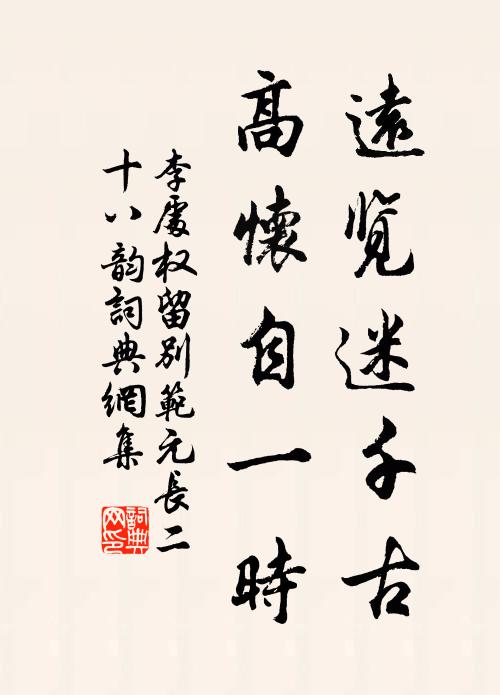 遠覽迷千古
高懷自一時
李處权留別範元長二
十八韵詞典網集
詞典
网印